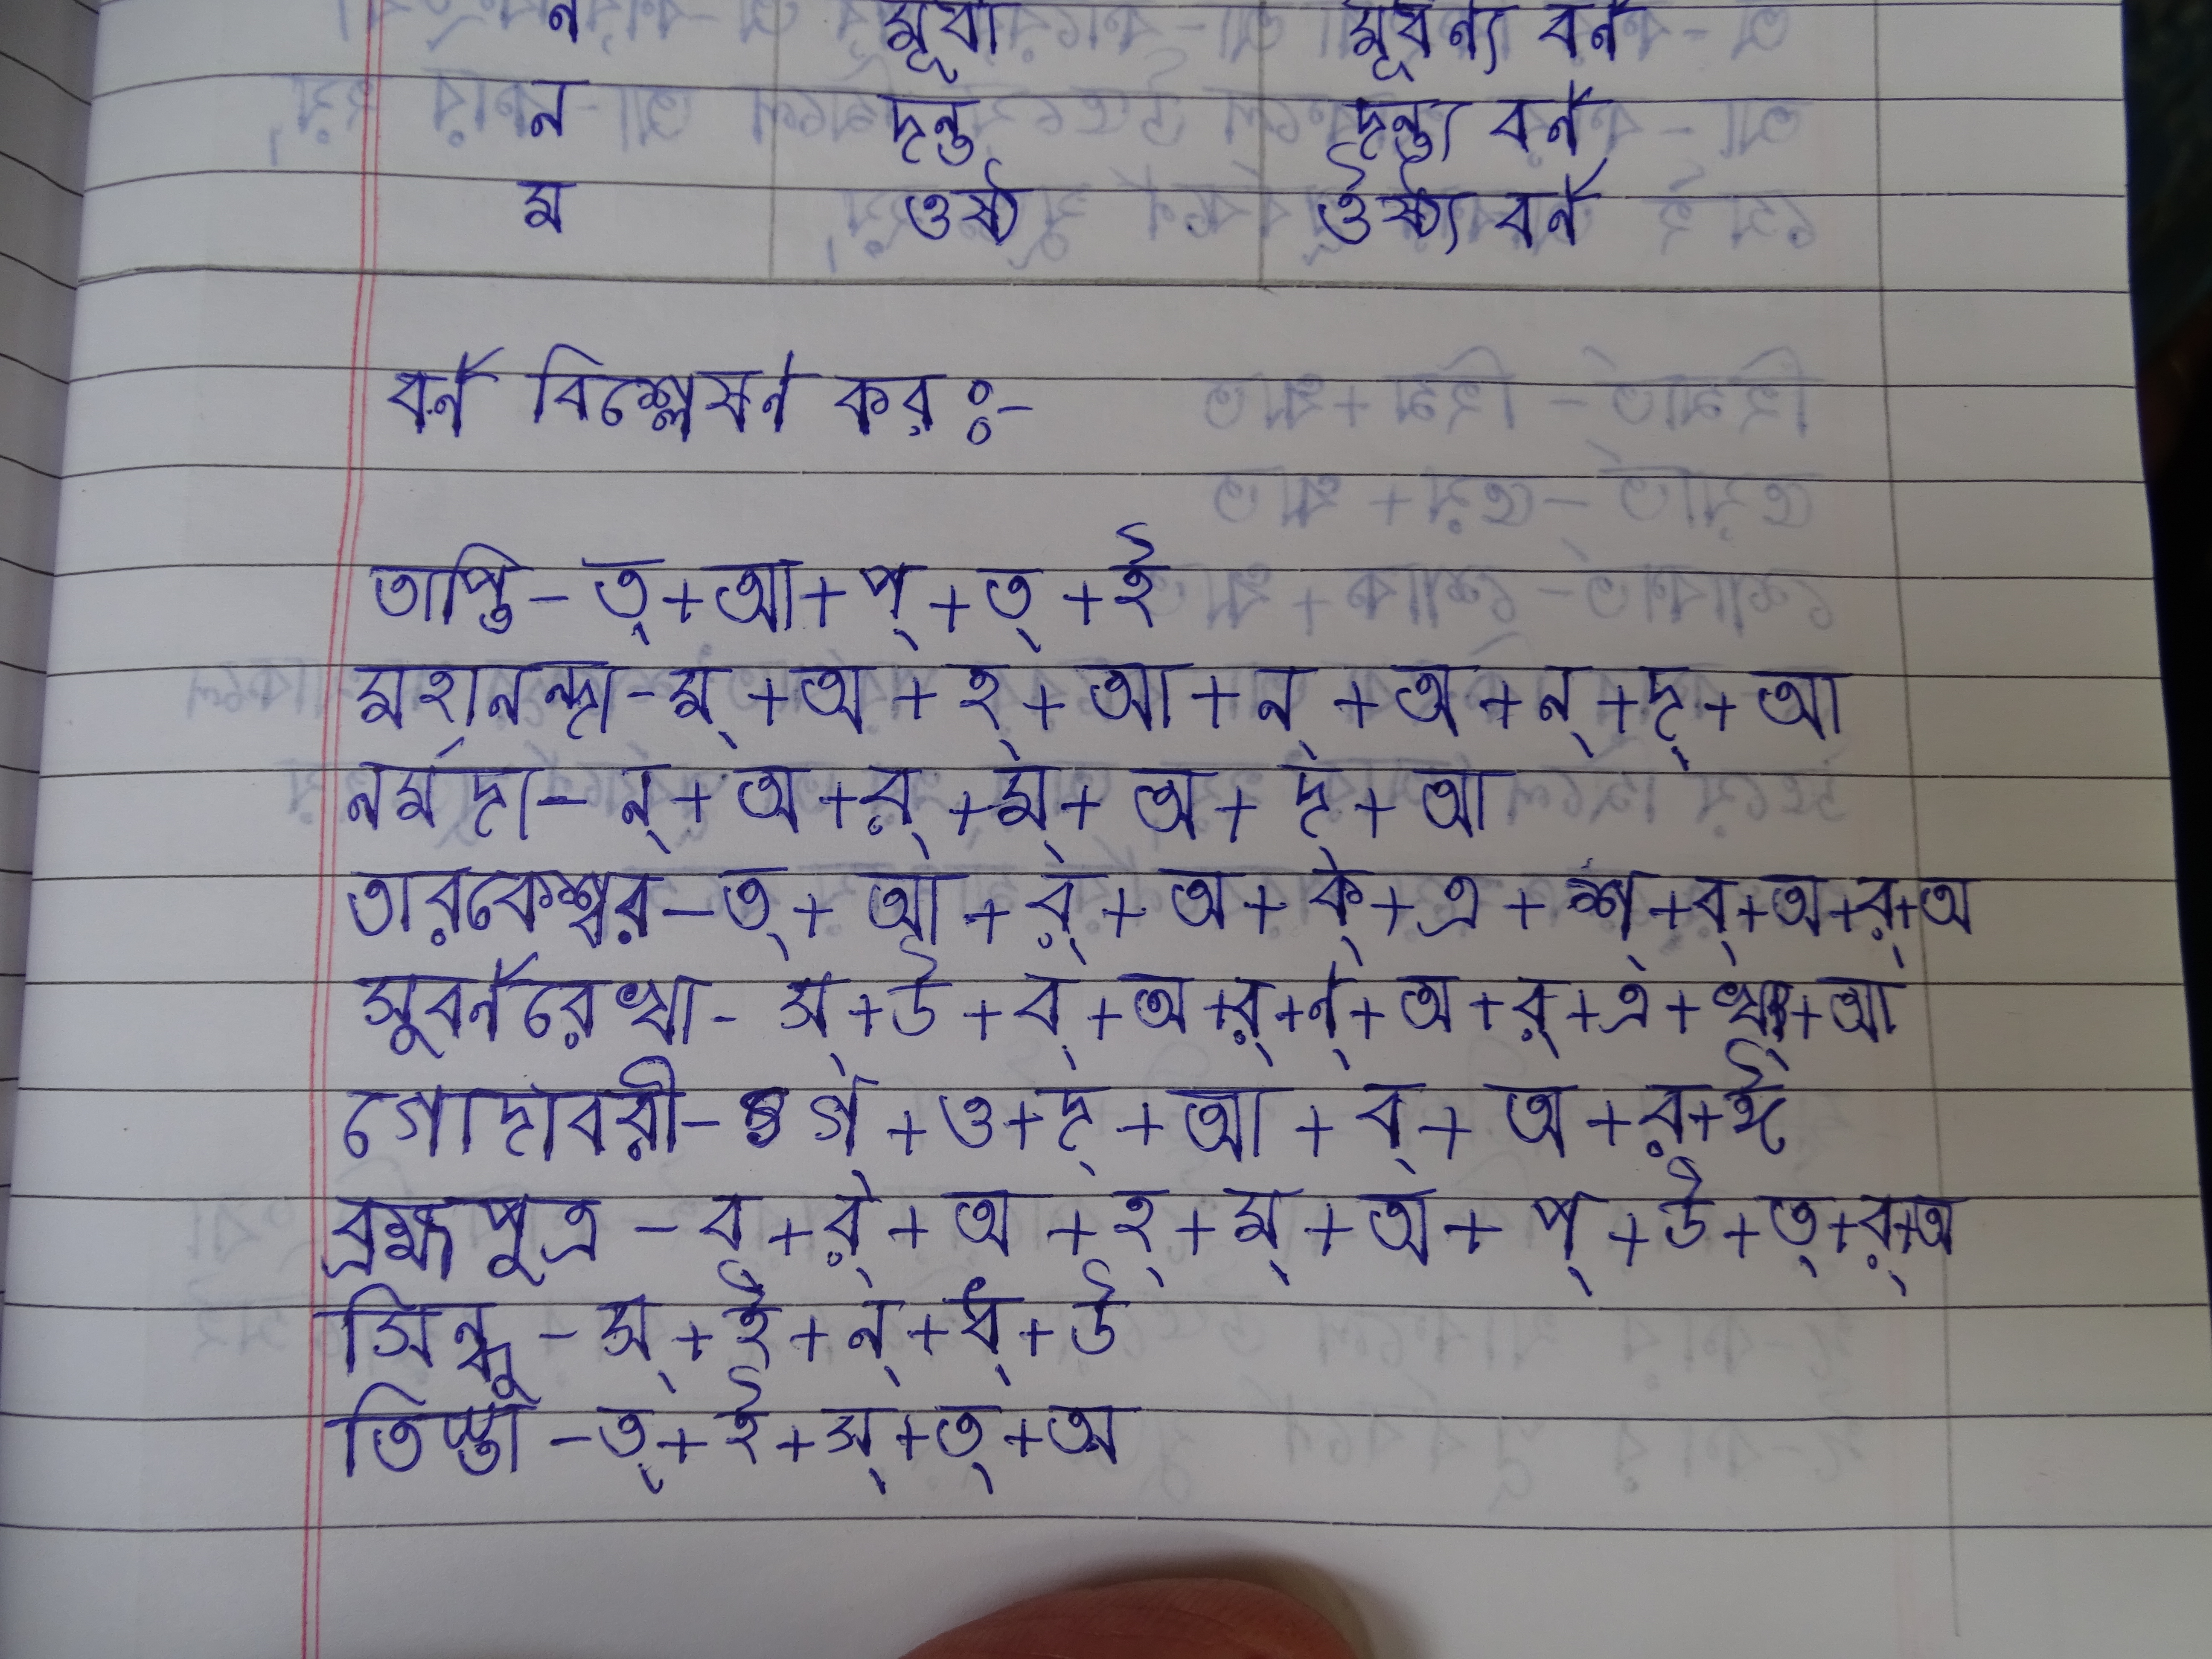 ন মূর্ধা মূর্ধন্য বর্ন
ন দন্ত দন্ত্য বর্ন
ম ওষ্ঠ ওঁষ্ঠ্য বর্ন
বর্ন বিশ্লেষন কর :-
তাপ্তি - ত্ + আ + প্ + ত্ + ই
মহানন্দা - ম্ + অ + হ্ + আ + ন্ + অ + ন্ + দ্ + আ
নর্মদা - ন্ + অ + র্ + ম্ + অ + দ্ + আ
তারকেশ্বর - ত্ + আ + র্ + অ + ক্ + এ + শ্ + ব্ + অ + র্ + অ
সুবর্নরেখা - স্ + উ + ব্ + অ + র্ + ন্ + অ + র্ + এ + খ্ + আ
গোদাবরী - গ্ + ও + দ্ + আ + ব্ + অ + র্ + ঈ
ব্রহ্মপুত্র - ব্ + র্ + অ + হ্ + ম্ + অ + প্ + উ + ত্ + র্ + অ
সিন্ধু - স্ + ই + ন্ + ধ্ + উ
তিস্তা - ত্ + ই + স্ + ত্ + অ